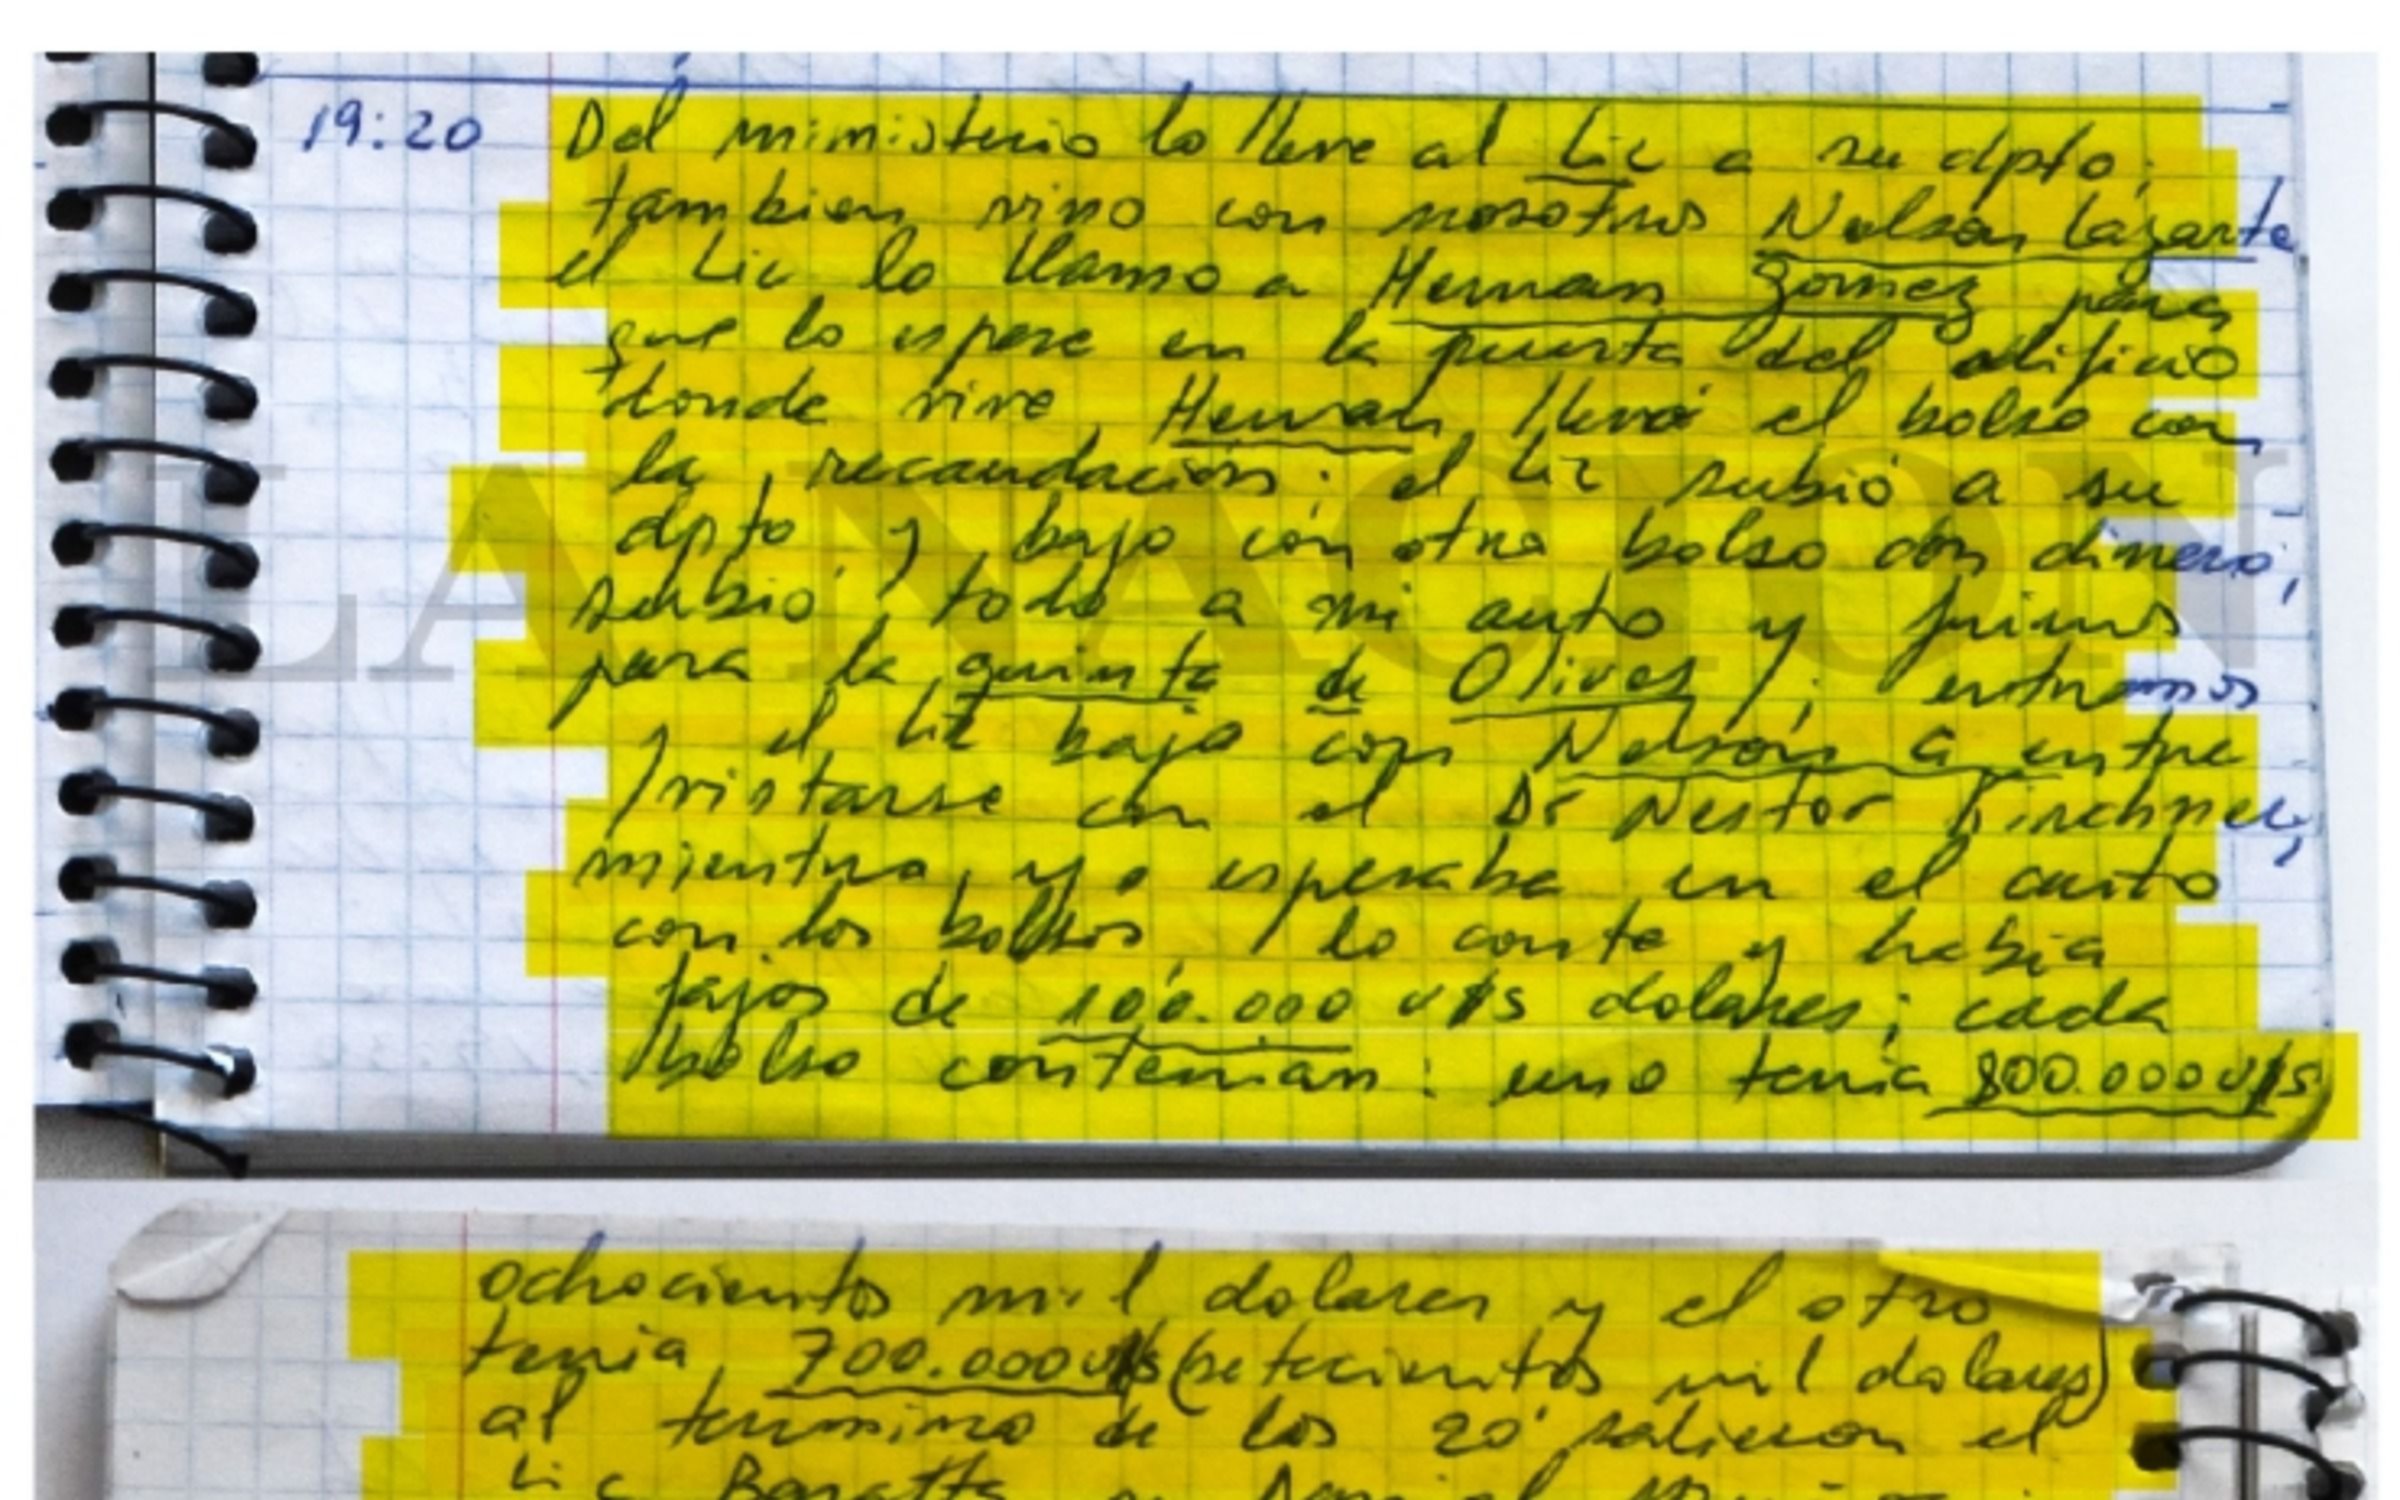 19:20 Del ministerio lo lleve al Lic a su dpto;
tambien vino con nosotros Nelson Lazarte
el Lic lo llamo a Hernan Gomez para
que lo espere en la puerta del edificio
donde vive, Hernan llevó el bolso con
la recaudación; el Lic subió a su
dpto y bajo con otro bolso con dinero,
subió todo a mi auto y fuimos
para la quinta de Olivos; entramos
y el Lic bajo con Nelson a entre
vistarse con el Dr Nestor Kirchner,
mientras yo esperaba en el auto
con los bolsos, lo conte y habia
fajos de 100.000 u$s dolares; cada
bolso contenian: uno tenia 800.000 u$s
LA NACION
ochocientos mil dolares y el otro
tenia 700.000 u$s (setecientos mil dolares)
al termino de los 20' salieron el
Lic Baratta y Daniel